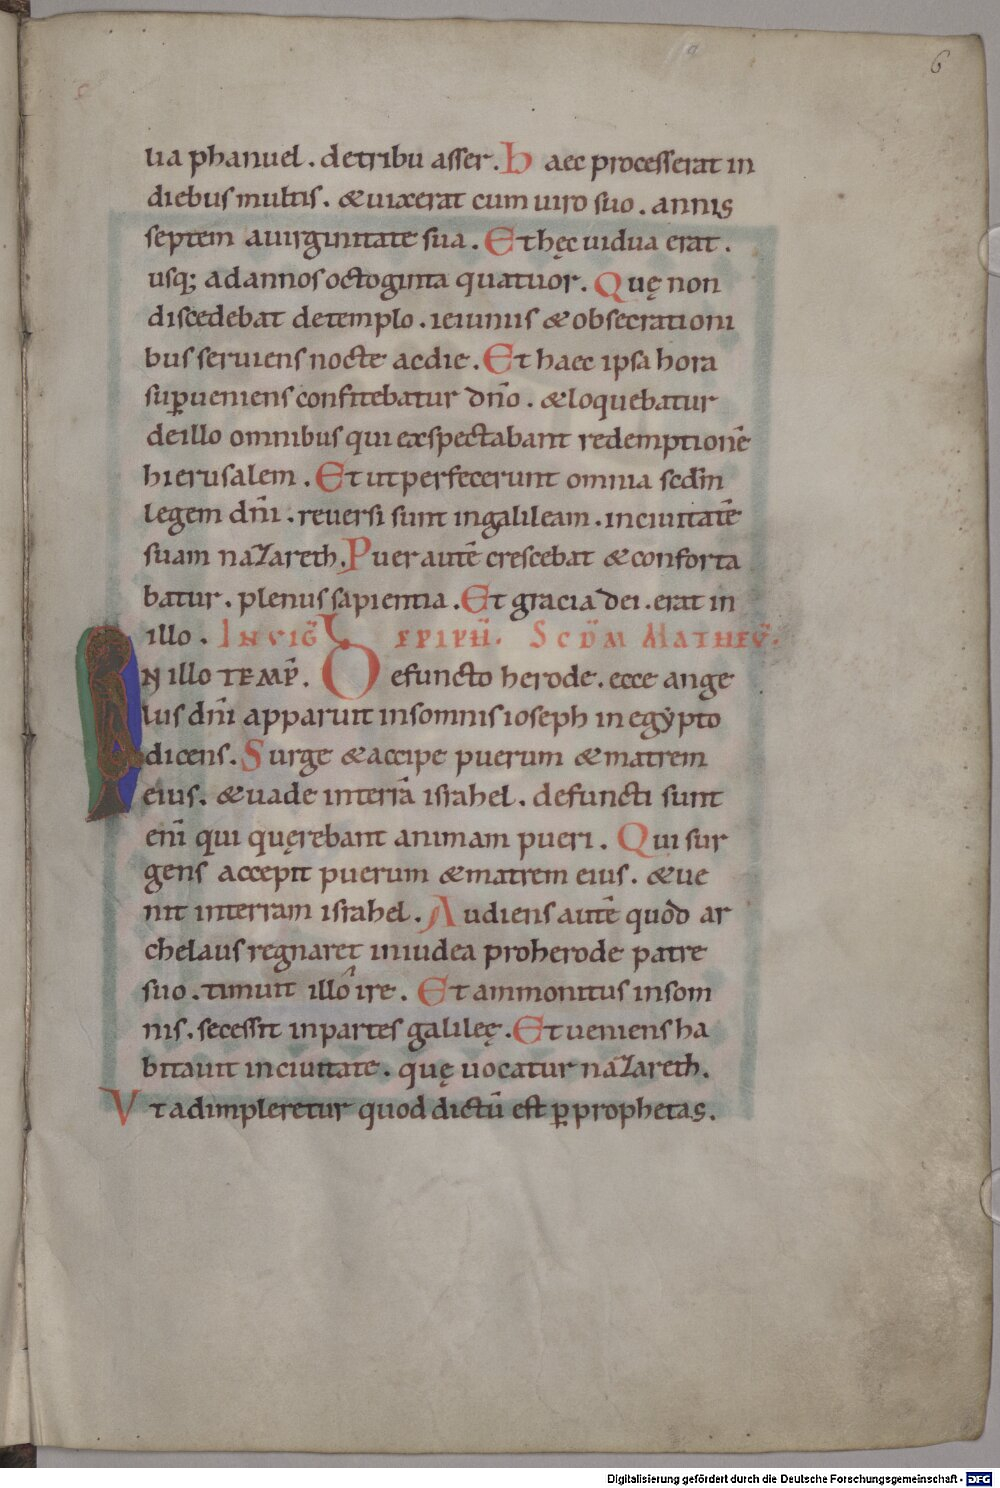 6
lia phanuel . detribu asser . haec processerat in
diebus multis . & uixerat cum uiro suo . annis
septem auirginitate sua . Et hęc uidua erat .
usq; adannos octoginta quatuor . Quę non
discedebat detemplo . ieiuniis & obsecrationi
bus seruiens nocte acdie . Et haec ipsa hora
suꝑueniens confitebatur dn̄o . & loquebatur
deillo omnibus qui exspectabant redemptionē
hierusalem . Et ut perfecerunt omnia scdm̄
legem dn̄i . reuersi sunt ingalileam . inciuitatē
suam nazareth . Puer autē crescebat & conforta
batur . plenus sapientia . Et gracia dei . erat in
illo . IN UIG̅ EPIPH̅ . SCD̅M MATHEU̅ .
IN illo TEMP̅R . Defuncto herode . ecce ange
lus dn̄i apparuit insomnis ioseph in egẏpto
dicens . Surge & accipe puerum & matrem
eius . & uade interrā israhel . defuncti sunt
eni̅ qui quęrebant animam pueri . Qui sur
gens accepit puerum & matrem eius . & ue
nit interram israhel . Audiens autē quod ar
chelaus regnaret iniudea proherode patre
suo . timuit illo ire . Et ammonitus insom
nis . secessit inpartes galileę . Et ueniens ha
bitauit inciuitate . quę uocatur nazareth .
Ut adimpleretur quod dictū est ꝑ prophetas .
Digitalisierung gefördert durch die Deutsche Forschungsgemeinschaft - DFG